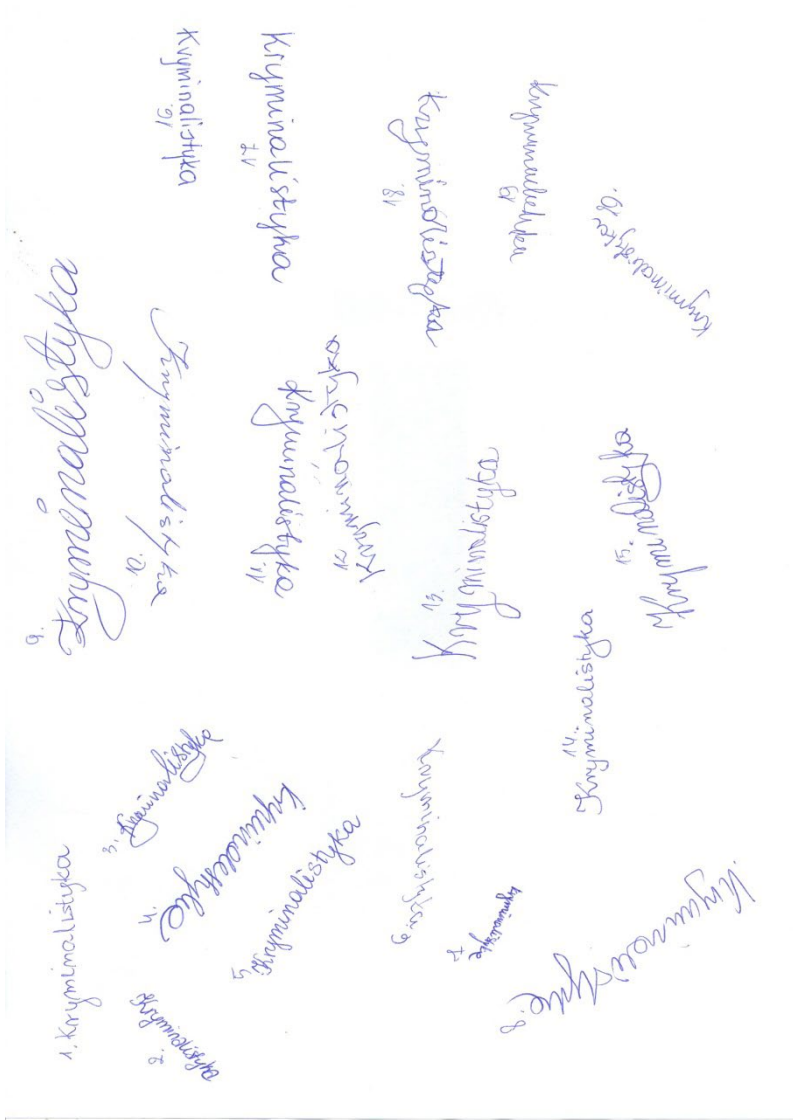 1. Kryminalistyka
2. Kryminalistyka
3. Kryminalistyka
4. Kryminalistyka
5. Kryminalistyka
6. Kryminalistyka
7. Kryminalistyka
8. Kryminalistyka
9. Kryminalistyka
10. Kryminalistyka
11. Kryminalistyka
12. Kryminalistyka
13. Kryminalistyka
14. Kryminalistyka
15. Kryminalistyka
16. Kryminalistyka
17. Kryminalistyka
18. Kryminalistyka
19. Kryminalistyka
Kryminalistyka